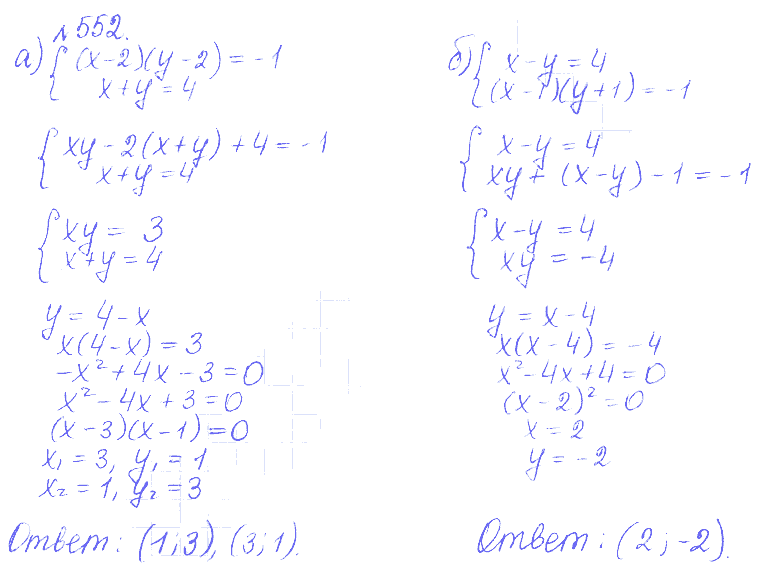 №552.
а) { (x-2)(y-2) = -1
x+y = 4
{ xy-2(x+y)+4 = -1
x+y = 4
{ xy = 3
x+y = 4
y = 4-x
x(4-x) = 3
-x²+4x-3=0
x²-4x+3=0
(x-3)(x-1)=0
x₁=3, y₁=1
x₂=1, y₂=3
Ответ: (1;3), (3;1).
б) { x-y = 4
(x-1)(y+1) = -1
{ x-y = 4
xy+(x-y)-1 = -1
{ x-y = 4
xy = -4
y = x-4
x(x-4) = -4
x²-4x+4=0
(x-2)²=0
x=2
y=-2
Ответ: (2;-2).